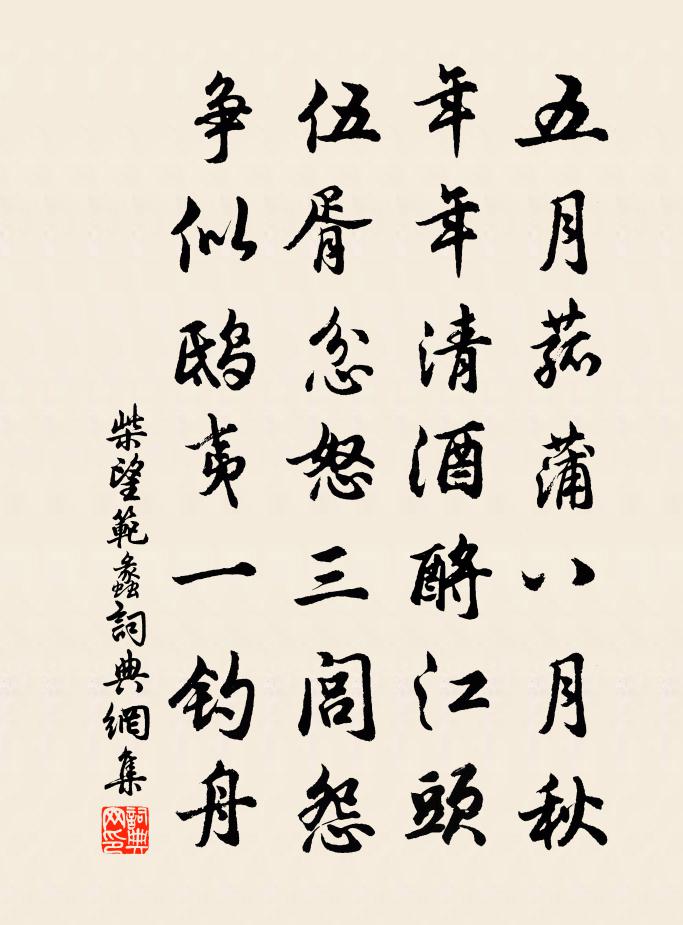 五月菰蒲八月秋
年年清酒酹江頭
伍胥忿怒三閭怨
争似鴟夷一钓舟
柴望範蠡詞典網集
詞典网印